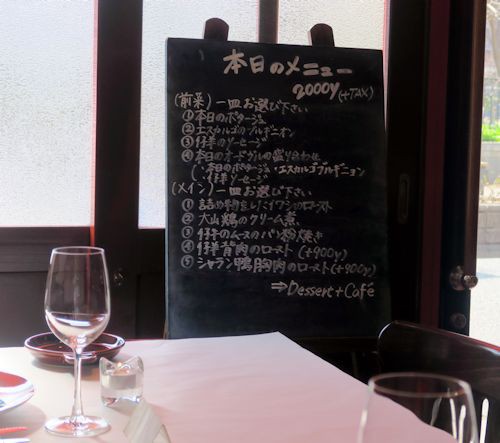 本日のメニュー
2000y(+TAX)
(前菜)一皿お選び下さい
①本日のポタージュ
②エスカルゴのブルギニオン
③仔羊のソーセージ
④本日のオードヴルの盛り合わせ
(・本日のポタージュ・エスカルゴブルギニョン
・仔羊ソーセージ)
(メイン)一皿お選び下さい
①詰め物をしたイワシのロースト
②大山鶏のクリーム煮
③仔牛のムースのパン粉焼き
④仔羊背肉のロースト(+900y)
⑤シャラン鴨胸肉のロースト(+900y)
⇒Dessert+Café